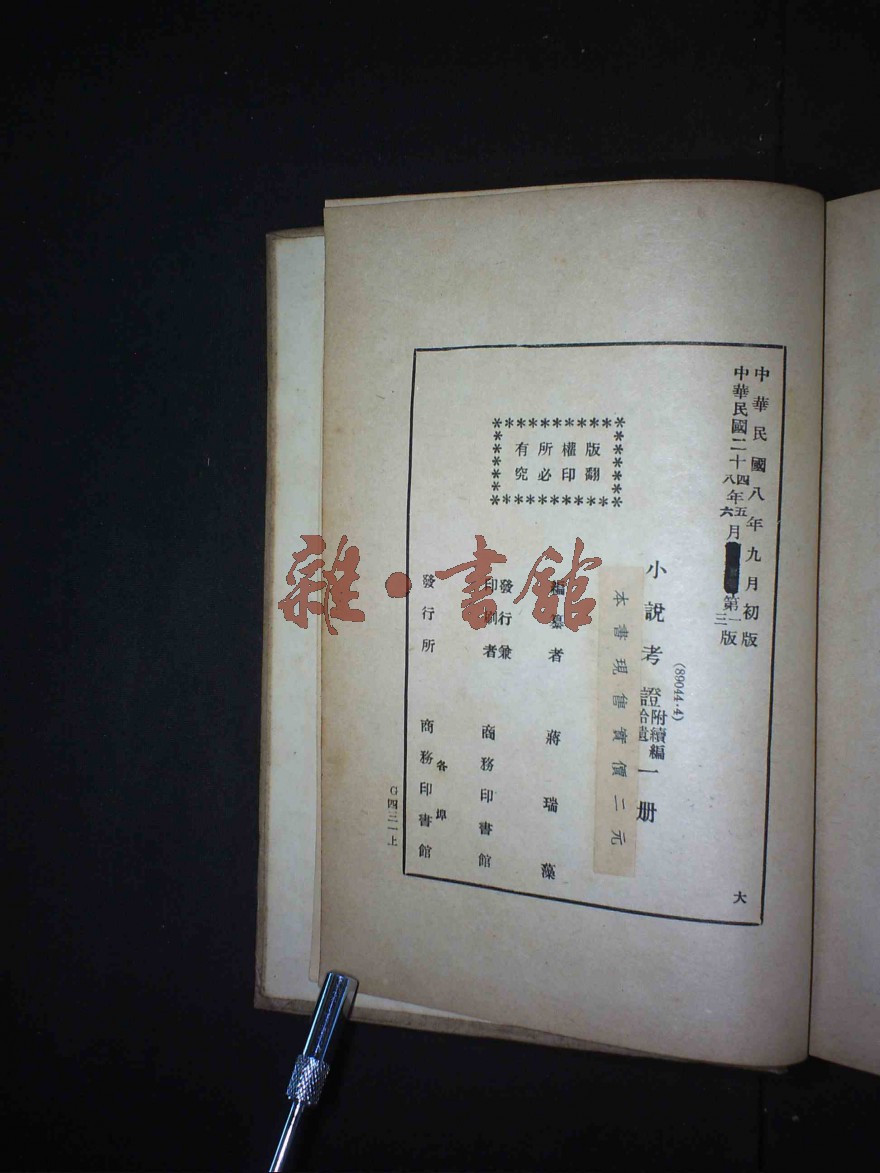 中華民國八年九月初版
中華民國二十四八年五六月第一三版
大
(89044·4)
小說考證附續編拾遺一册
本書現售實價二元
版權所有
翻印必究
編纂者 蔣瑞藻
發行兼
印刷者 商務印書館
各埠
發行所 商務印書館
G四三一上
雜·書館